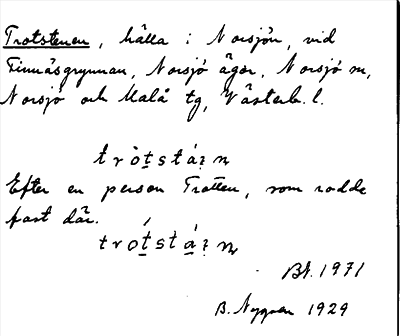 Trotstenen, hälla i Norsjön, vid
Finnäsgrynnan, Norsjö ägor, Norsjö sn,
Norsjö och Malå tg, Västerb. l.
Efter en person Trotten, som rodde
fast där.
Bt. 1971
B. Nygren 1929